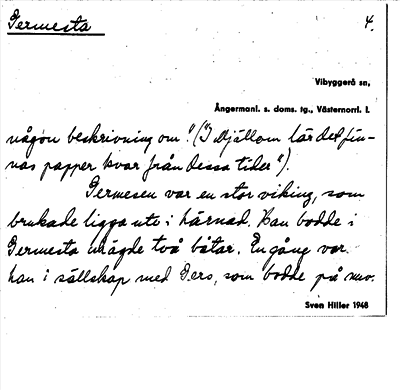 Germesta 4.
Vibyggerå sn,
Ångermanl. s. doms. tg., Västernorrl. l.
någon beskrivning om." ("I Djällom lär det fin-
nas papper kvar från dessa tider").
Germesen var en stor viking, som
brukade ligga ute i härnad. Han bodde i
Germesta ägde två båtar. En gång var
han i sällskap med Gers, som bodde på nuv.
Sven Hiller 1948